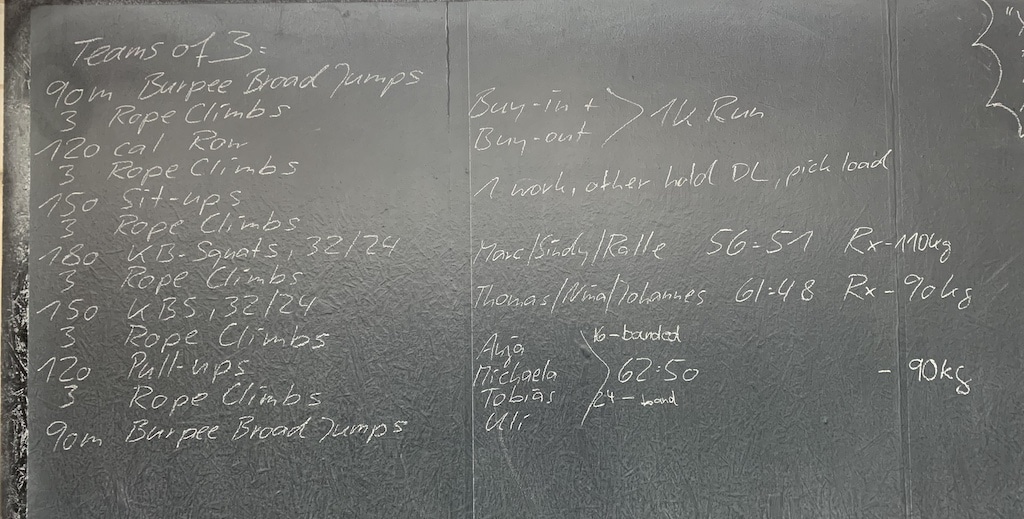 Teams of 3:
90m Burpee Broad Jumps
3 Rope Climbs
120 cal Row
3 Rope Climbs
150 Sit-ups
3 Rope Climbs
180 KB-Squats, 32/24
3 Rope Climbs
150 KBS, 32/24
3 Rope Climbs
120 Pull-ups
3 Rope Climbs
90m Burpee Broad Jumps
Buy-in +
Buy-out > 1k Run
1 work, other hold DL, pick load
Marc/Sindy/Ralle 56:51 Rx-110kg
Thomas/Nina/Johannes 61:48 Rx-90kg
Anja 16-banded
Michaela 62:50 - 90kg
Tobias 24-band
Uli